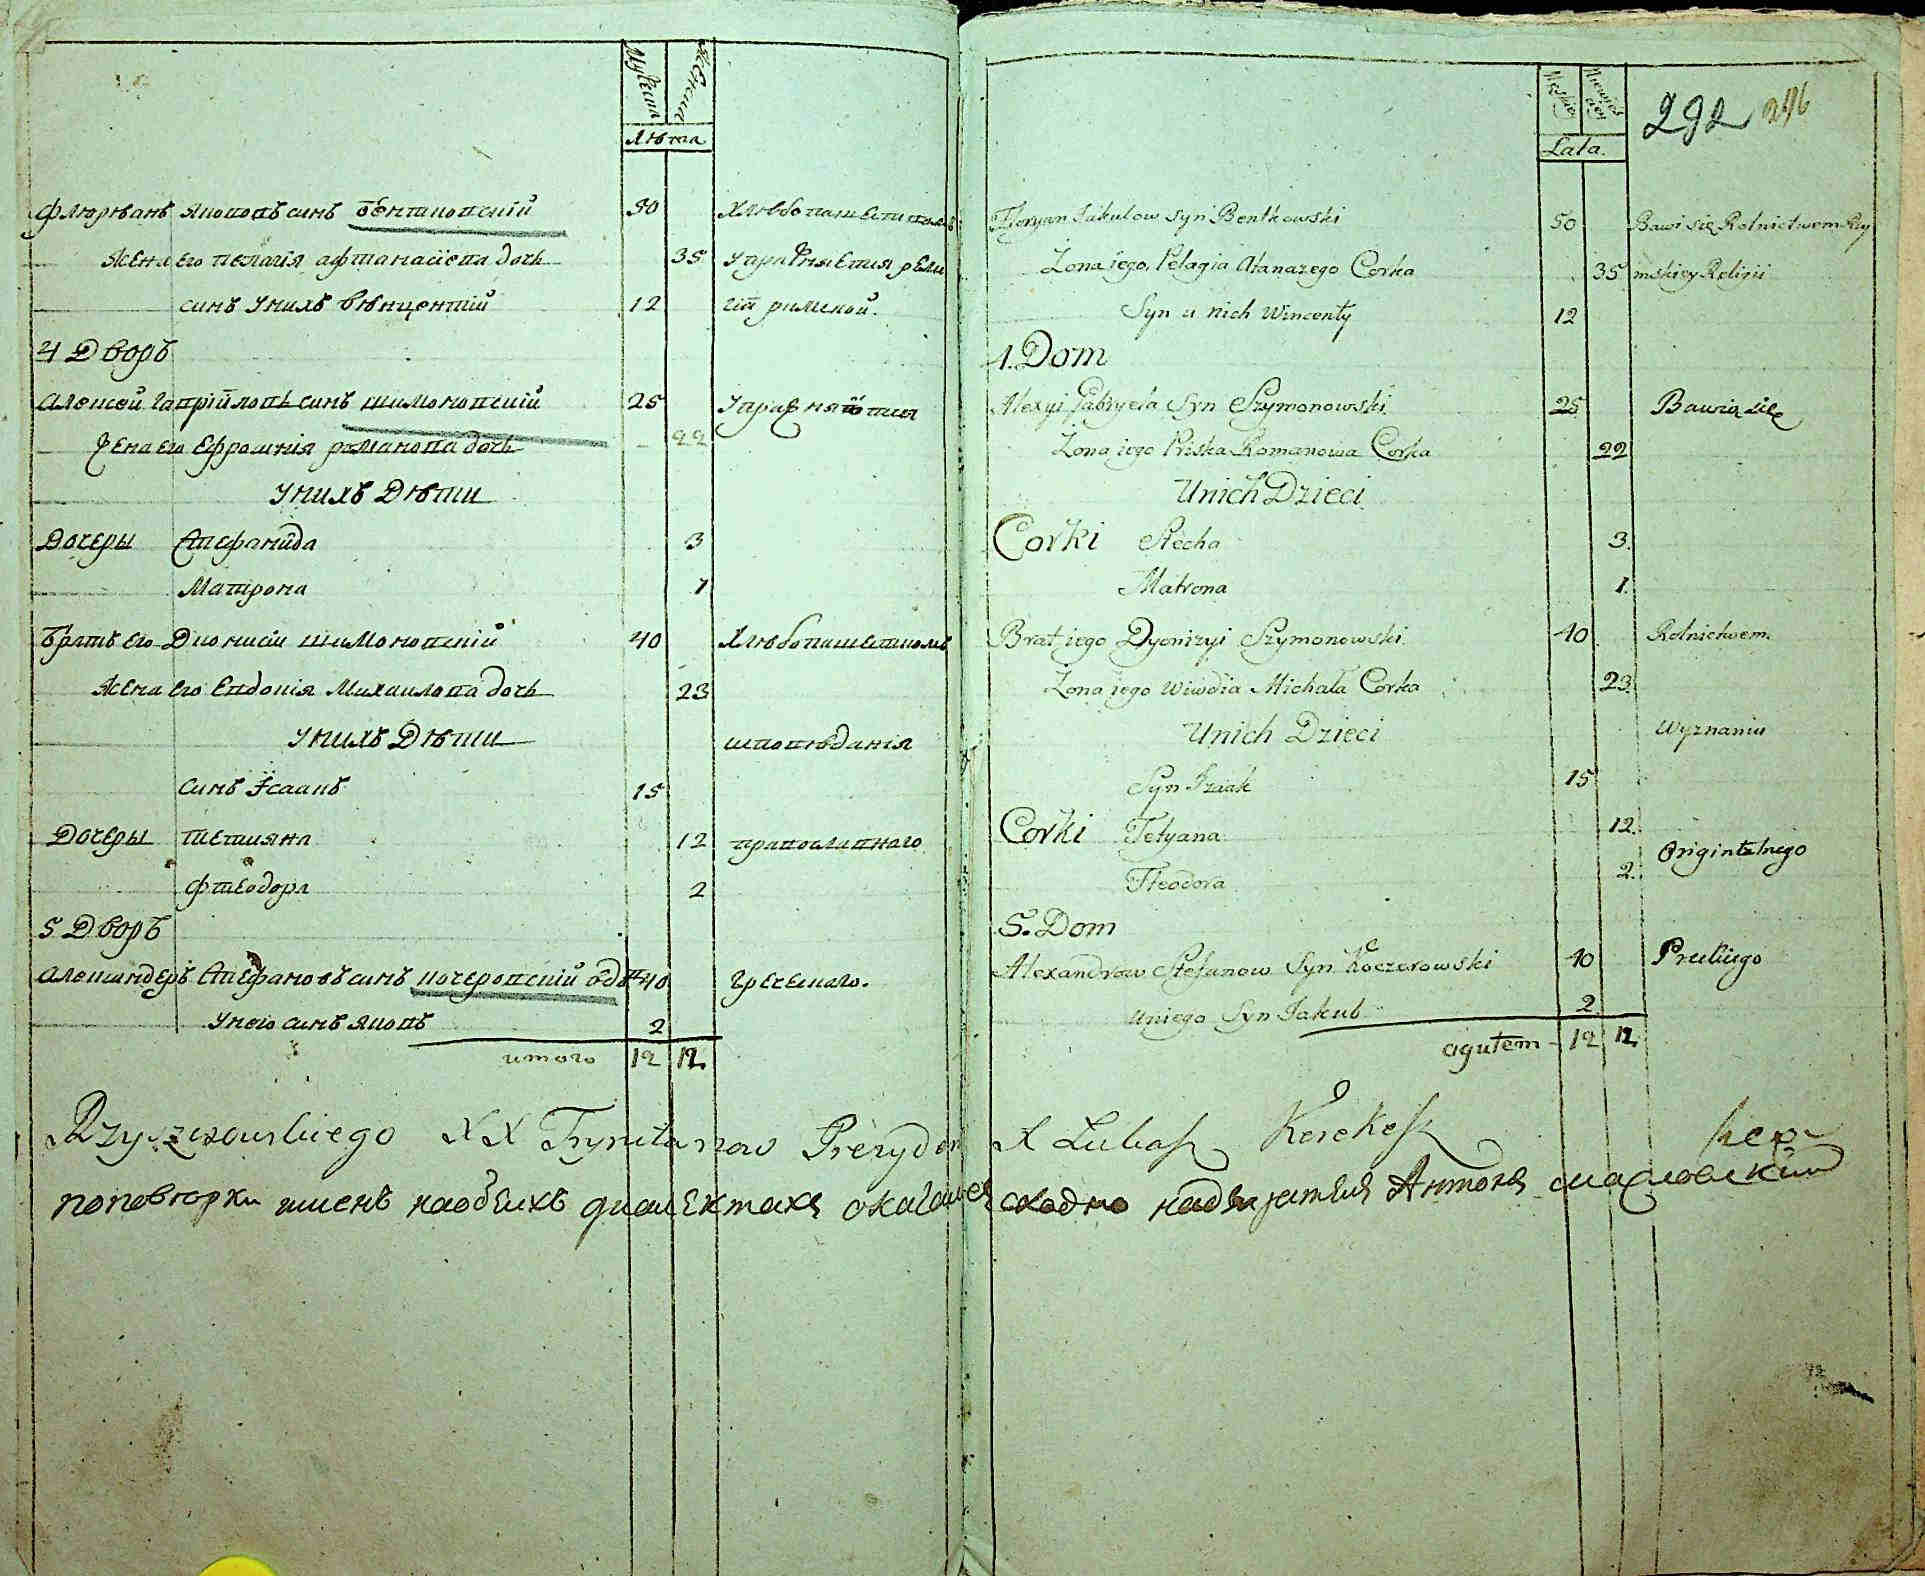 Мужеска Женска
Лѣта
Флюрѣанъ Якововъ синъ Бентковскій 50 Хлѣбопашествомъ
Жена Его пелагія афтанасіева дочь 35 Упражняется рели
синъ Унихъ вѣнцентій 12 гіи римской.
4 Дворъ
Алексей Гаврійловъ синъ шимоновскій 25 Упражняются
Жена Его Ефросинія романова дочь 22
Унихъ Дѣти
Дочеры Стефанида 3
Матрона 1
братъ Его Дионисій шимоновскій 40 Хлѣбопашествомъ
Жена Его Евдокія Михаилова дочь 23
Унихъ Дѣти исповѣданія
Синъ Ісаакъ 15
Дочеры тетияна 12 православнаго
Фтеодора 2
5 Дворъ
Александеръ Стефановъ синъ кочеровскій вдов 40 Греческаго.
Унего синъ Яковъ 2
итого 12 12.
Męskie Niewieście
292 296
Lata.
Floryan Jakulow syn Bentkowski 50 Bawi się Rolnictwem Rzy
Żona iego Pelagia Atanazego Corka 35 mskiey Religii
Syn u nich Wincenty 12
4. Dom
Alexyi Gabryela Syn Szymonowski 25 Bawią się
Żona iego Priska Romanowa Corka 22
Unich Dzieci
Corki Stecha 3.
Matrona 1.
Brat iego Dyonizyi Szymonowski 40 Rolnictwem.
Żona iego Wiwdia Michała Corka 23.
Unich Dzieci Wyznania
Syn Izaak 15
Corki Tetyana 12.
Origintalnego
Theodora 2.
5. Dom
Alexandrow Stefanow Syn Koczerowski 40 Greckiego
Uniego Syn Jakub 2
ogułem 12 12.
Rzyszczowskiego XX Trynitarzow Prezydent X Lukasz Kerekesz
поповюрки именъ наобеихъ диалектахъ оказалися сходно надзиратель Антонъ масловскій